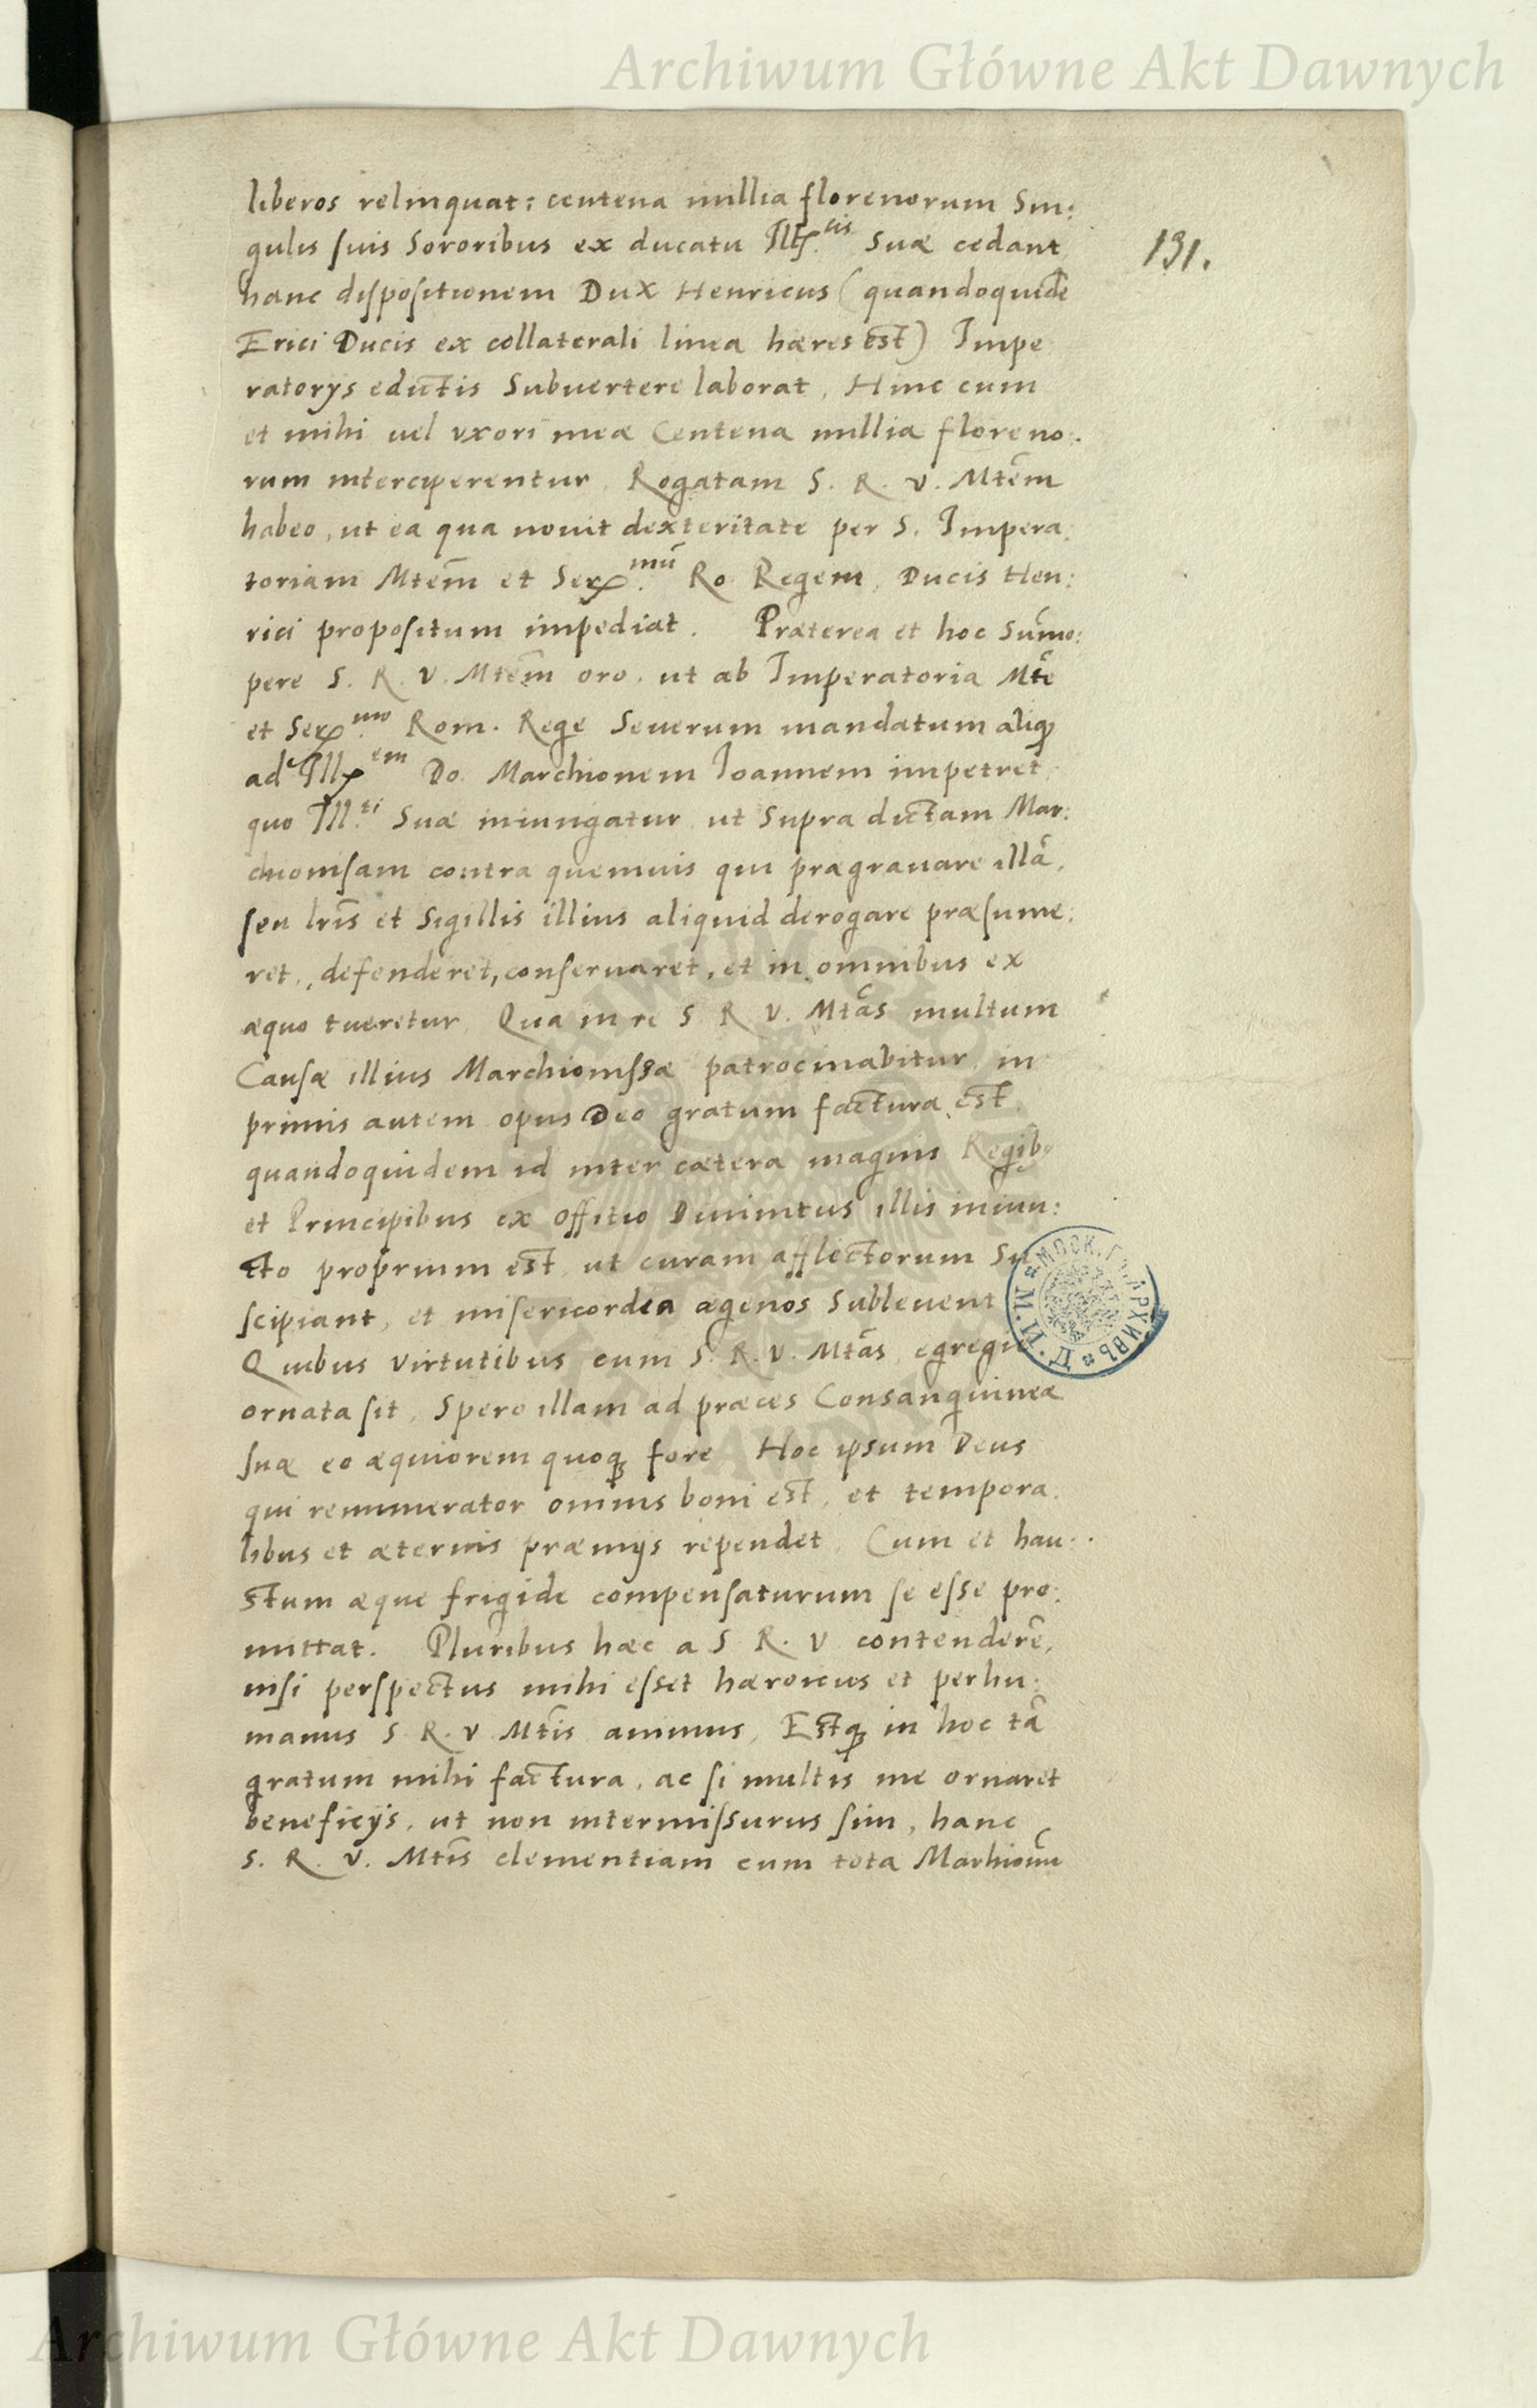 Archiwum Główne Akt Dawnych
liberos relinquat: centena millia florenorum Sin:
gulis suis Sororibus ex ducatu Ill.cis Suæ cedant
131.
hanc dispositionem Dux Henricus (quandoquidē
Erici Ducis ex collaterali linea hæres est) Impe
ratorys edictis Subuertere laborat, Hinc cum
et mihi uel vxori meæ Centena millia floreno:
rum interciperentur, Rogatam S. R. V. Mtēm
habeo, ut ea qua nouit dexteritate per S. Impera:
toriam Mtēm et Ser.mū Ro. Regem, Ducis Hen:
rici propositum impediat. Præterea et hoc Sūmo:
pere S. R. V. Mtēm oro, ut ab Imperatoria Mtē
et Ser.mo Rom. Rege Seuerum mandatum aliq
ad Ill.em Do. Marchionem Joannem impetret
quo Ill.ti Suæ iniungatur ut Supra dictam Mar:
chionisam contra quemuis qui prægrauare illā,
seu lrīs et Sigillis illius aliquid derogare præsume:
ret, defenderet, conseruaret, et in omnibus ex
æquo tueretur. Qua in re S. R. V. Mtās multum
Causæ illius Marchionissæ patrocinabitur, in
primis autem opus Deo gratum factura est,
quandoquidem id inter cætera magnis Regib9
et Principibus ex offitio Diuinitus illis iniun:
cto proprium est, ut curam afflectorum Su
scipiant, et misericordia ægenos Subleuent
Quibus virtutibus cum S. R. V. Mtās egregie
ornata sit, Spero illam ad præces Consanguineæ
suæ eo æquiorem quoq fore Hoc ipsum Deus
qui remunerator omnis boni est, et tempora:
libus et æternis præmijs rependet, Cum et hau:
stum aque frigide compensaturum se esse pro:
mittat. Pluribus hæc a S. R. V contenderē,
nisi perspectus mihi esset hæroicus et perhu:
manus S. R. V Mtīs animus, Estq in hoc tā
gratum mihi factura, ac si multis me ornaret
beneficijs, ut non intermissurus sim, hanc
S. R. V. Mtīs clementiam cum tota Marhionū
Archiwum Główne Akt Dawnych